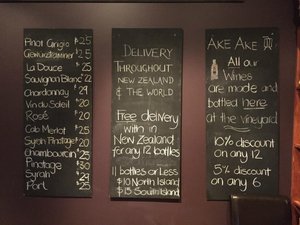 Pinot Grigio $25
Gewürztraminer $25
La Douce $25
Sauvignon Blanc $22
Chardonnay $29
Vin du Soleil $20
Rosé $20
Cab Merlot $25
Syrah Pinotage $20
Chambourcin $25
Pinotage $30
Syrah $28
Port $25
DELIVERY
THROUGHOUT
NEW ZEALAND
& THE WORLD
Free delivery
with in
New Zealand
for any 12 bottles
11 bottles or Less
$10 North Island
$15 South Island
AKE AKE
All our
Wines
are made and
bottled here
at the vineyard
10% discount
on any 12
5% discount
on any 6